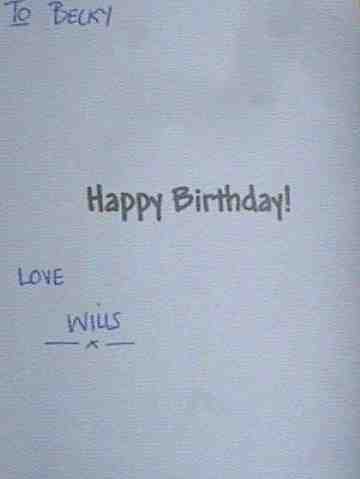 To BECKY
Happy Birthday!
LOVE
WILLS
x